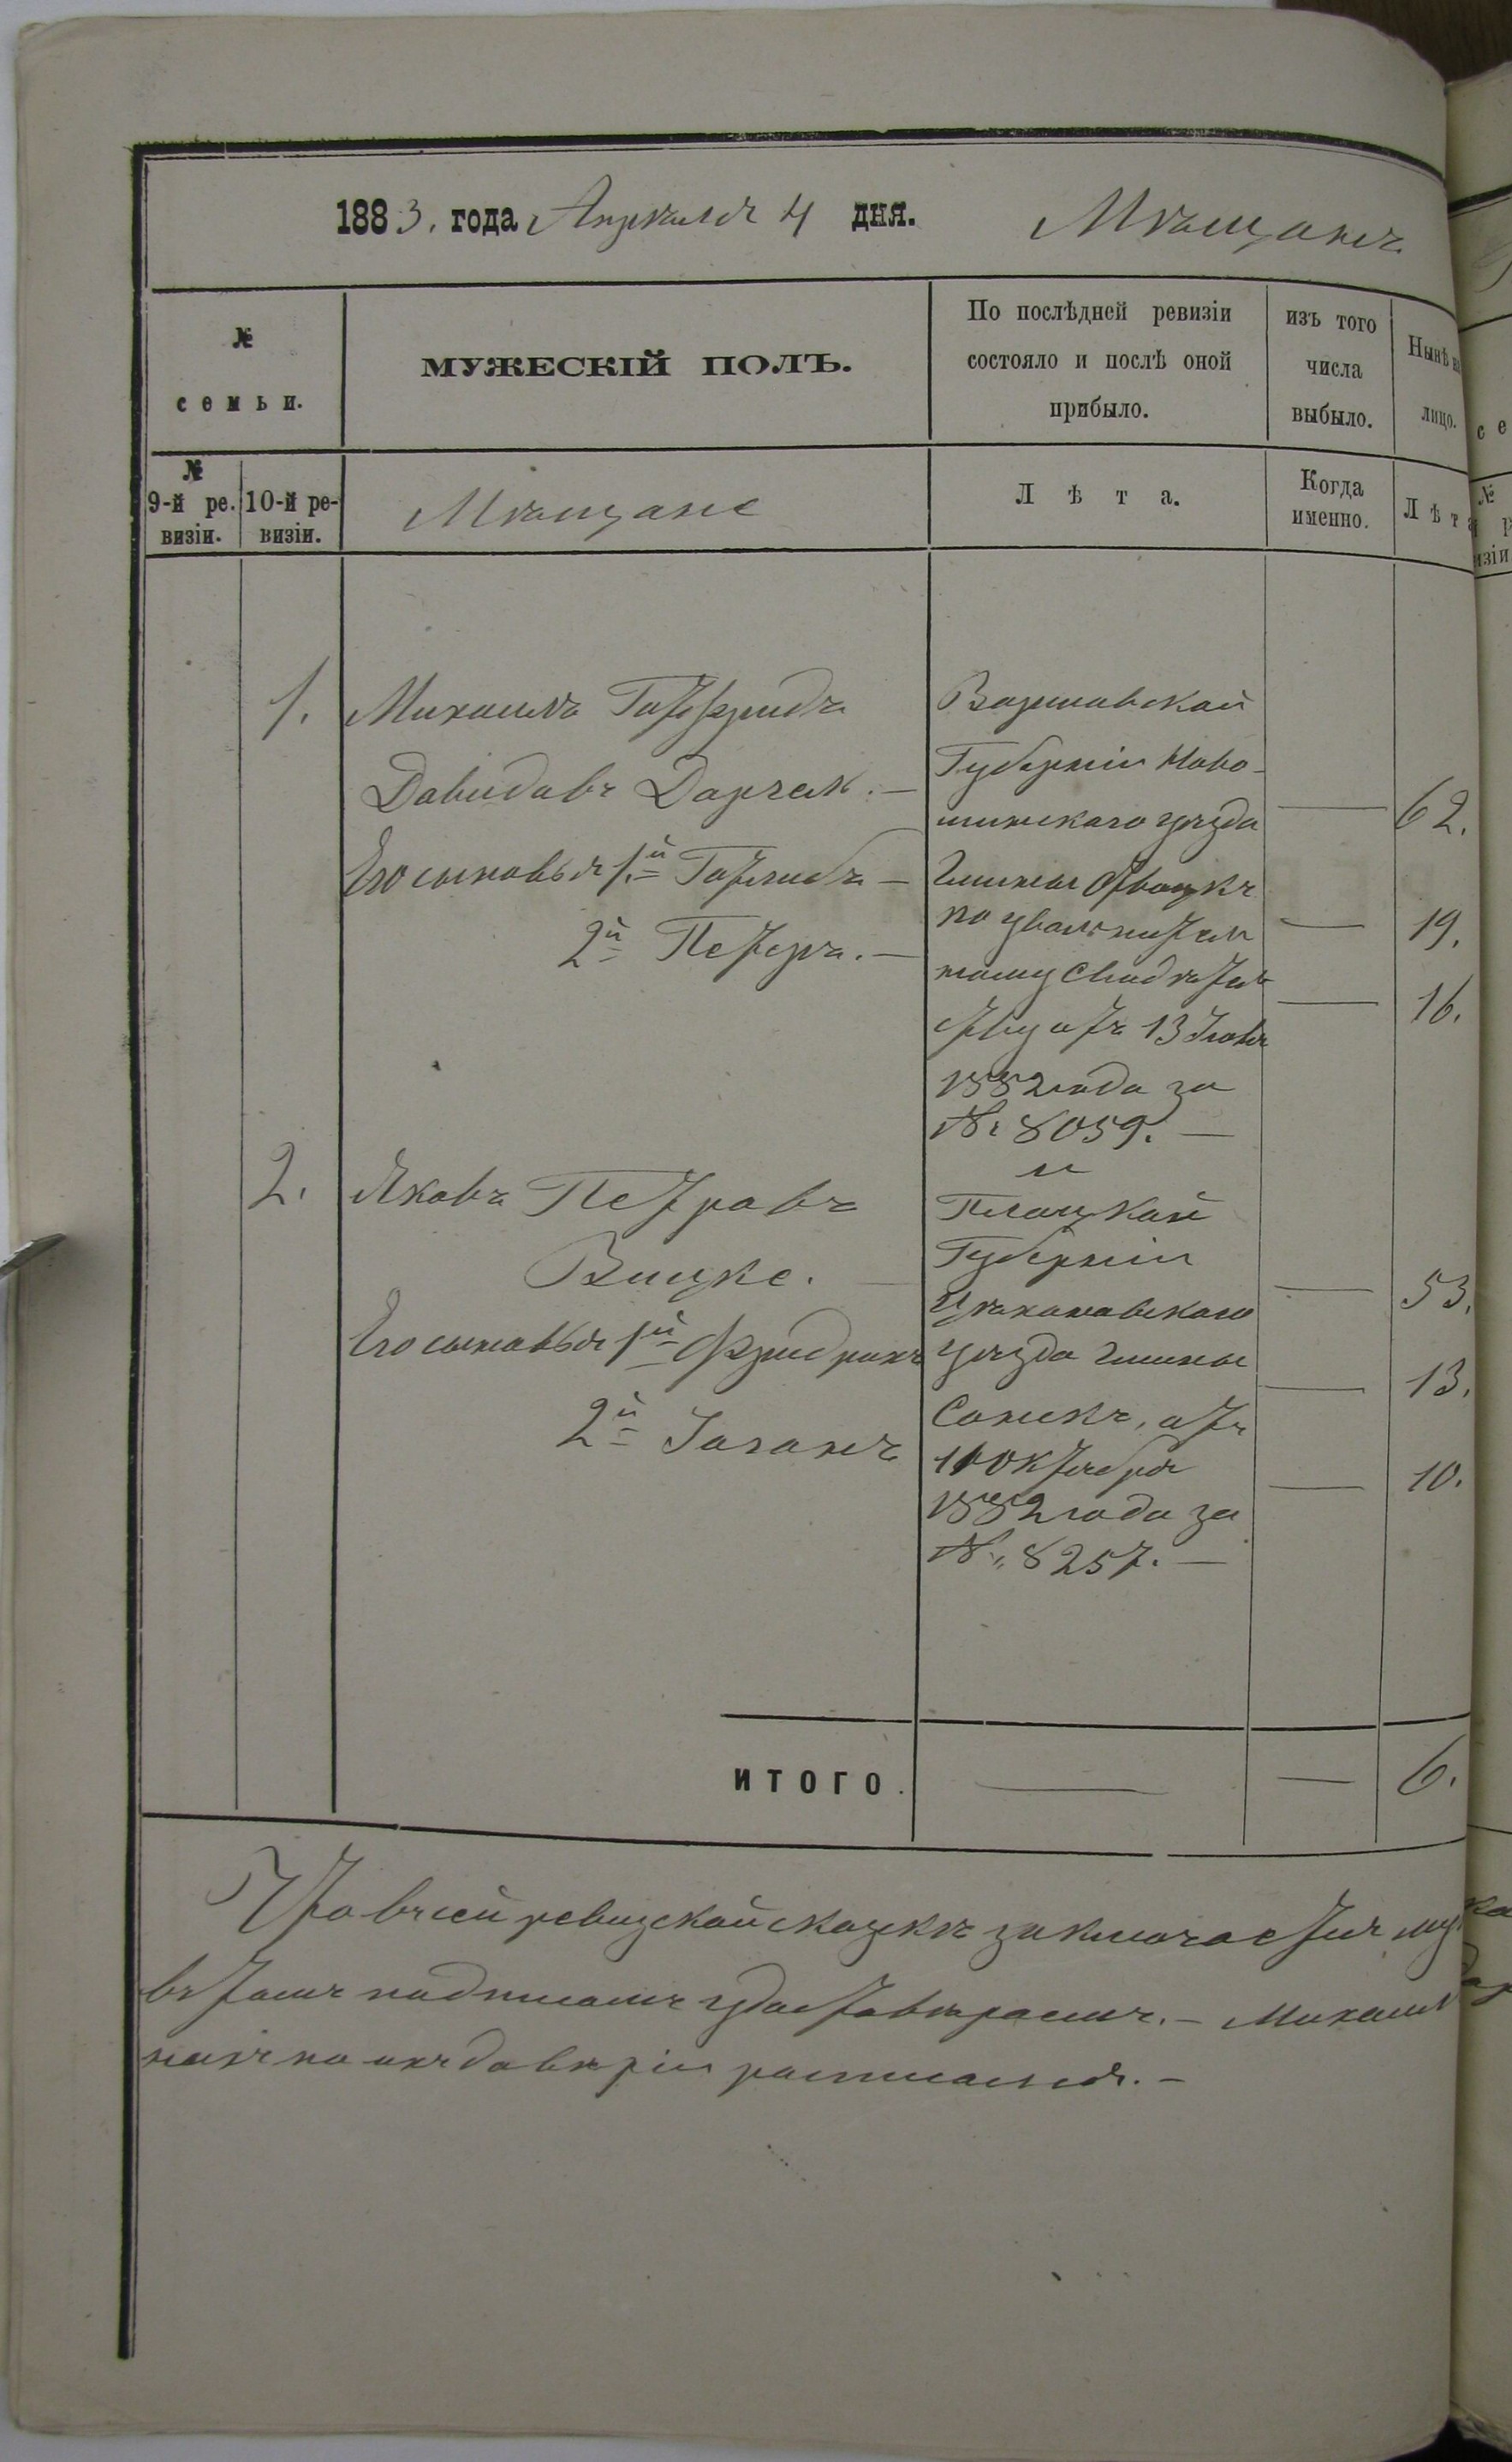 1883. года Апрѣля 4 дня. Мѣщанъ
№
семьи.
МУЖЕСКІЙ ПОЛЪ.
По послѣдней ревизіи
состояло и послѣ оной
прибыло.
изъ того
числа
выбыло.
Нынѣ на
лицо.
№
9-й ре.
визіи.
10-й ре-
визіи.
Мѣщане
Лѣта.
Когда
именно.
Лѣта
1. Михаилъ Готфридъ
Давидовъ Дарчек. —
Его сыновья 1й Готлибъ —
2й Петеръ. —
Варшавской
Губерніи Ново-
минскаго уѣзда
Гмины Отвоцкъ
по увольнитель
ному свидѣтель
ству отъ 13 Іюня
1882 года за
№ 8059. —
— 62.
— 19.
— 16.
2. Яковъ Петровъ
Вицке. —
Его сыновья 1й Фридрихъ
2й Іоганъ
и
Плоцкой
Губерніи
Цѣхановскаго
уѣзда гмины
Сонскъ, отъ
11 Октября
1882 года за
№ 8257. —
— 53.
— 13.
— 10.
ИТОГО. — — 6.
Что въ сей ревизской сказкѣ заключается
въ томъ подписомъ удостовѣряемъ. — Михаил
по ихъ довѣрію росписался. —